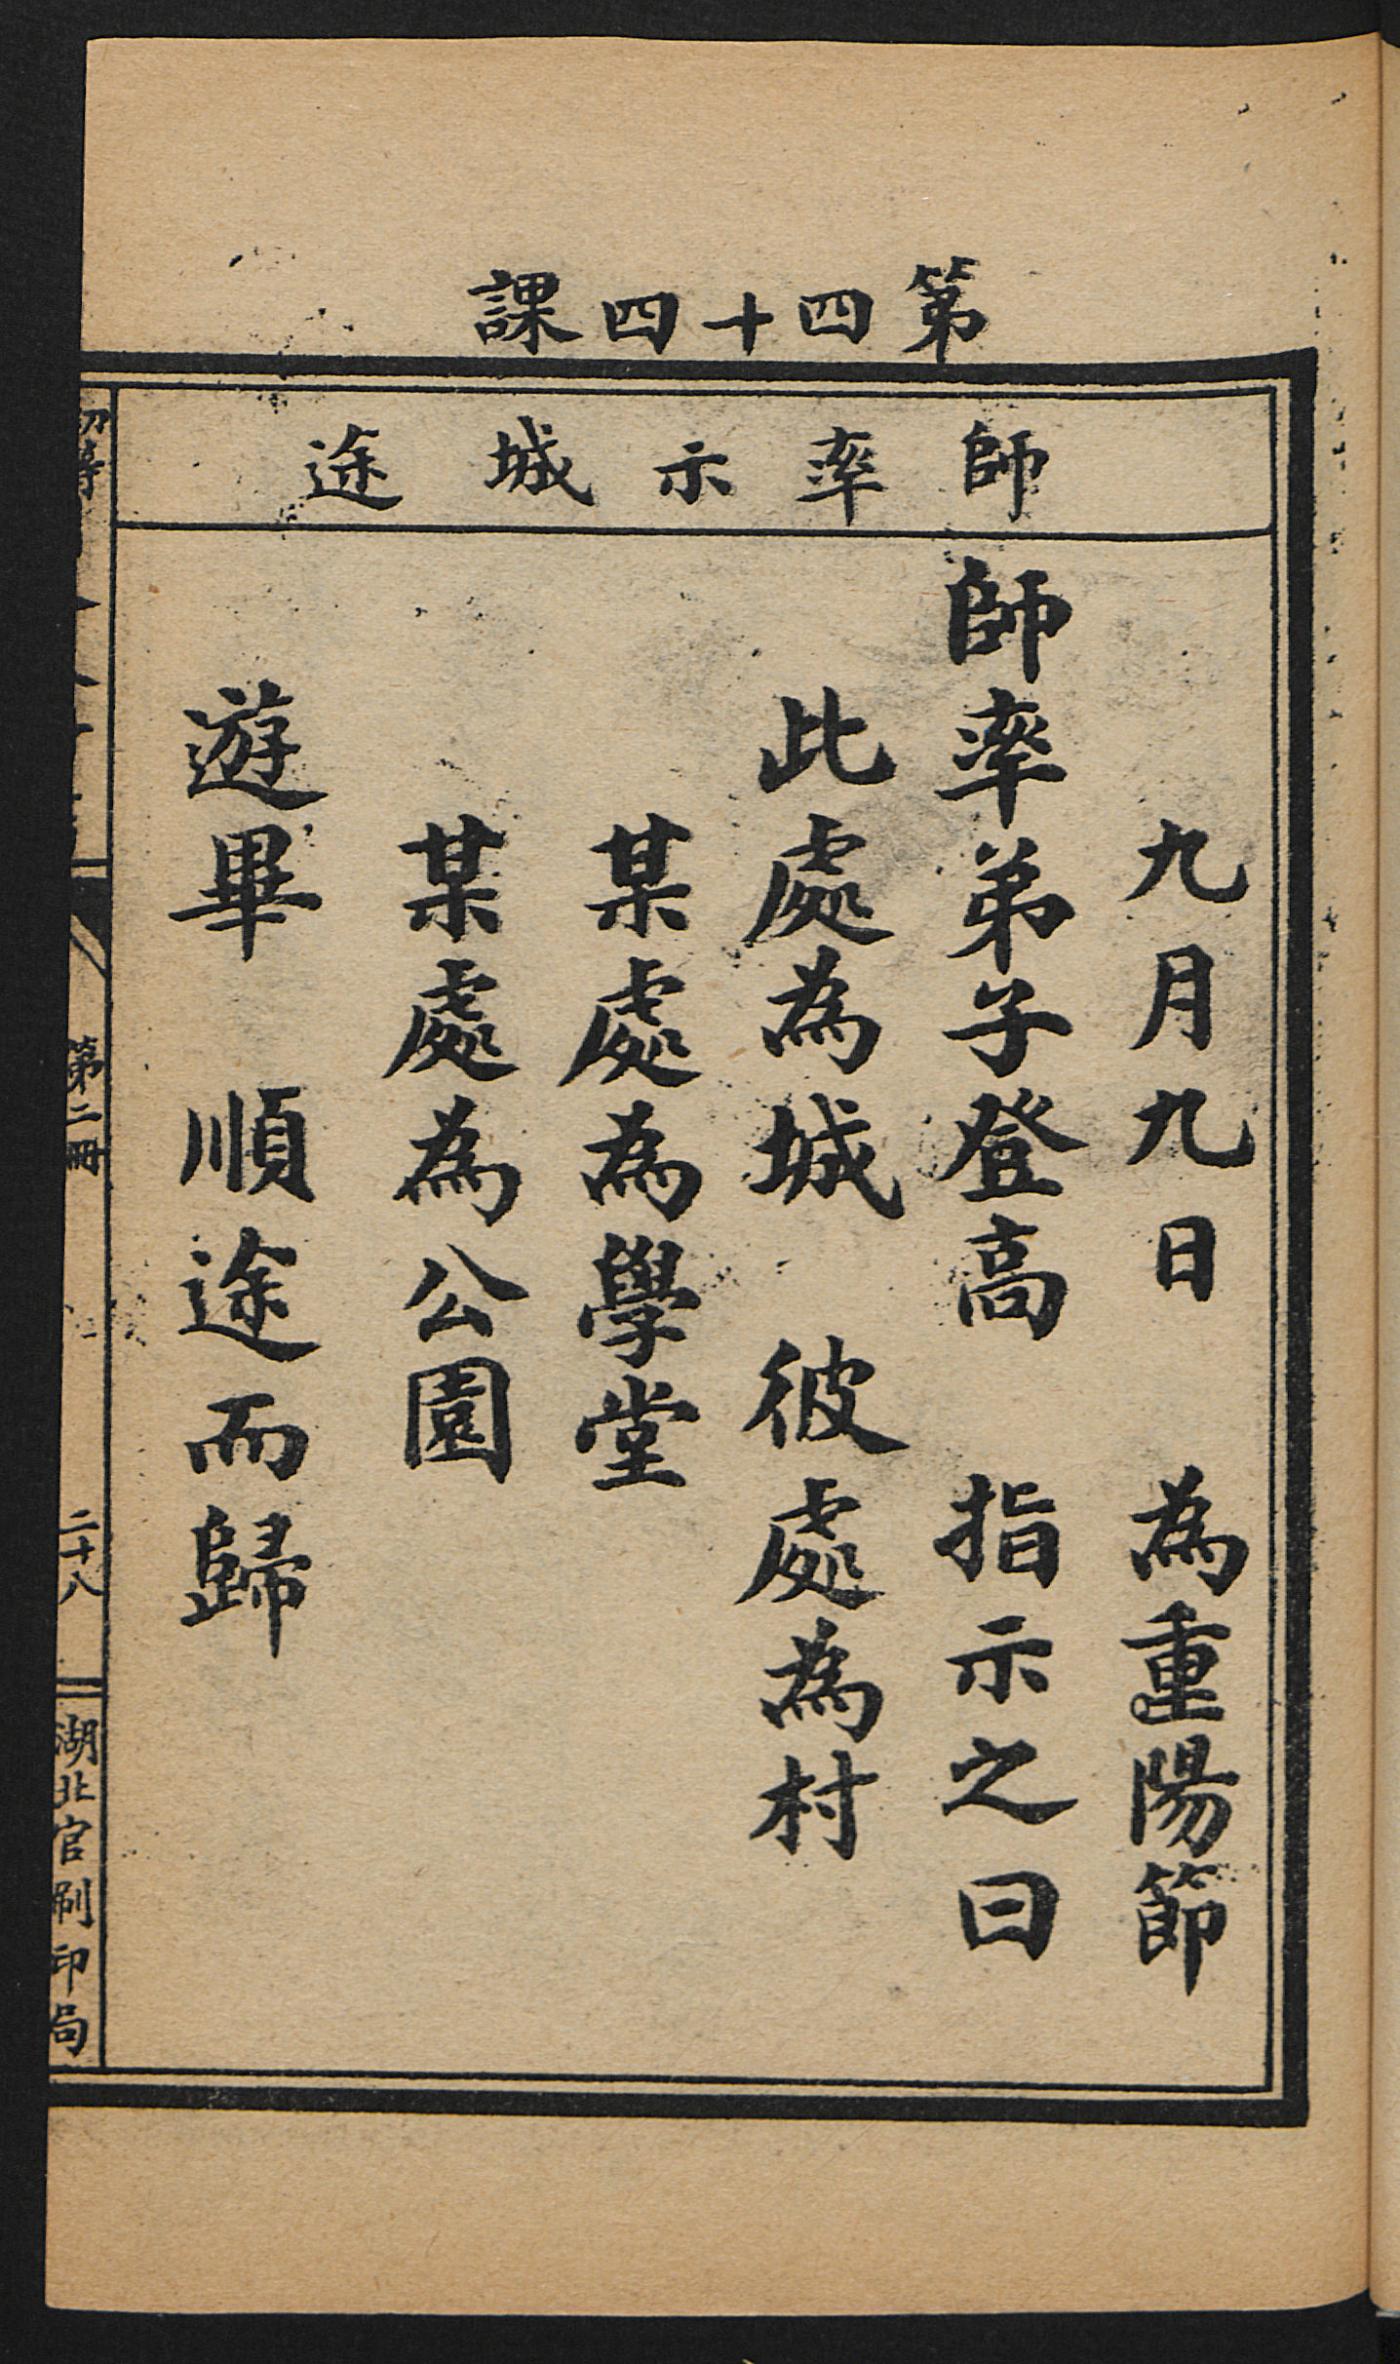 第四十四課
師率示城途
九月九日　為重陽節
師率弟子登高　指示之曰
此處為城　彼處為村
某處為學堂
某處為公園
遊畢　順途而歸
初等
第二冊
二十八
湖北官刷印局